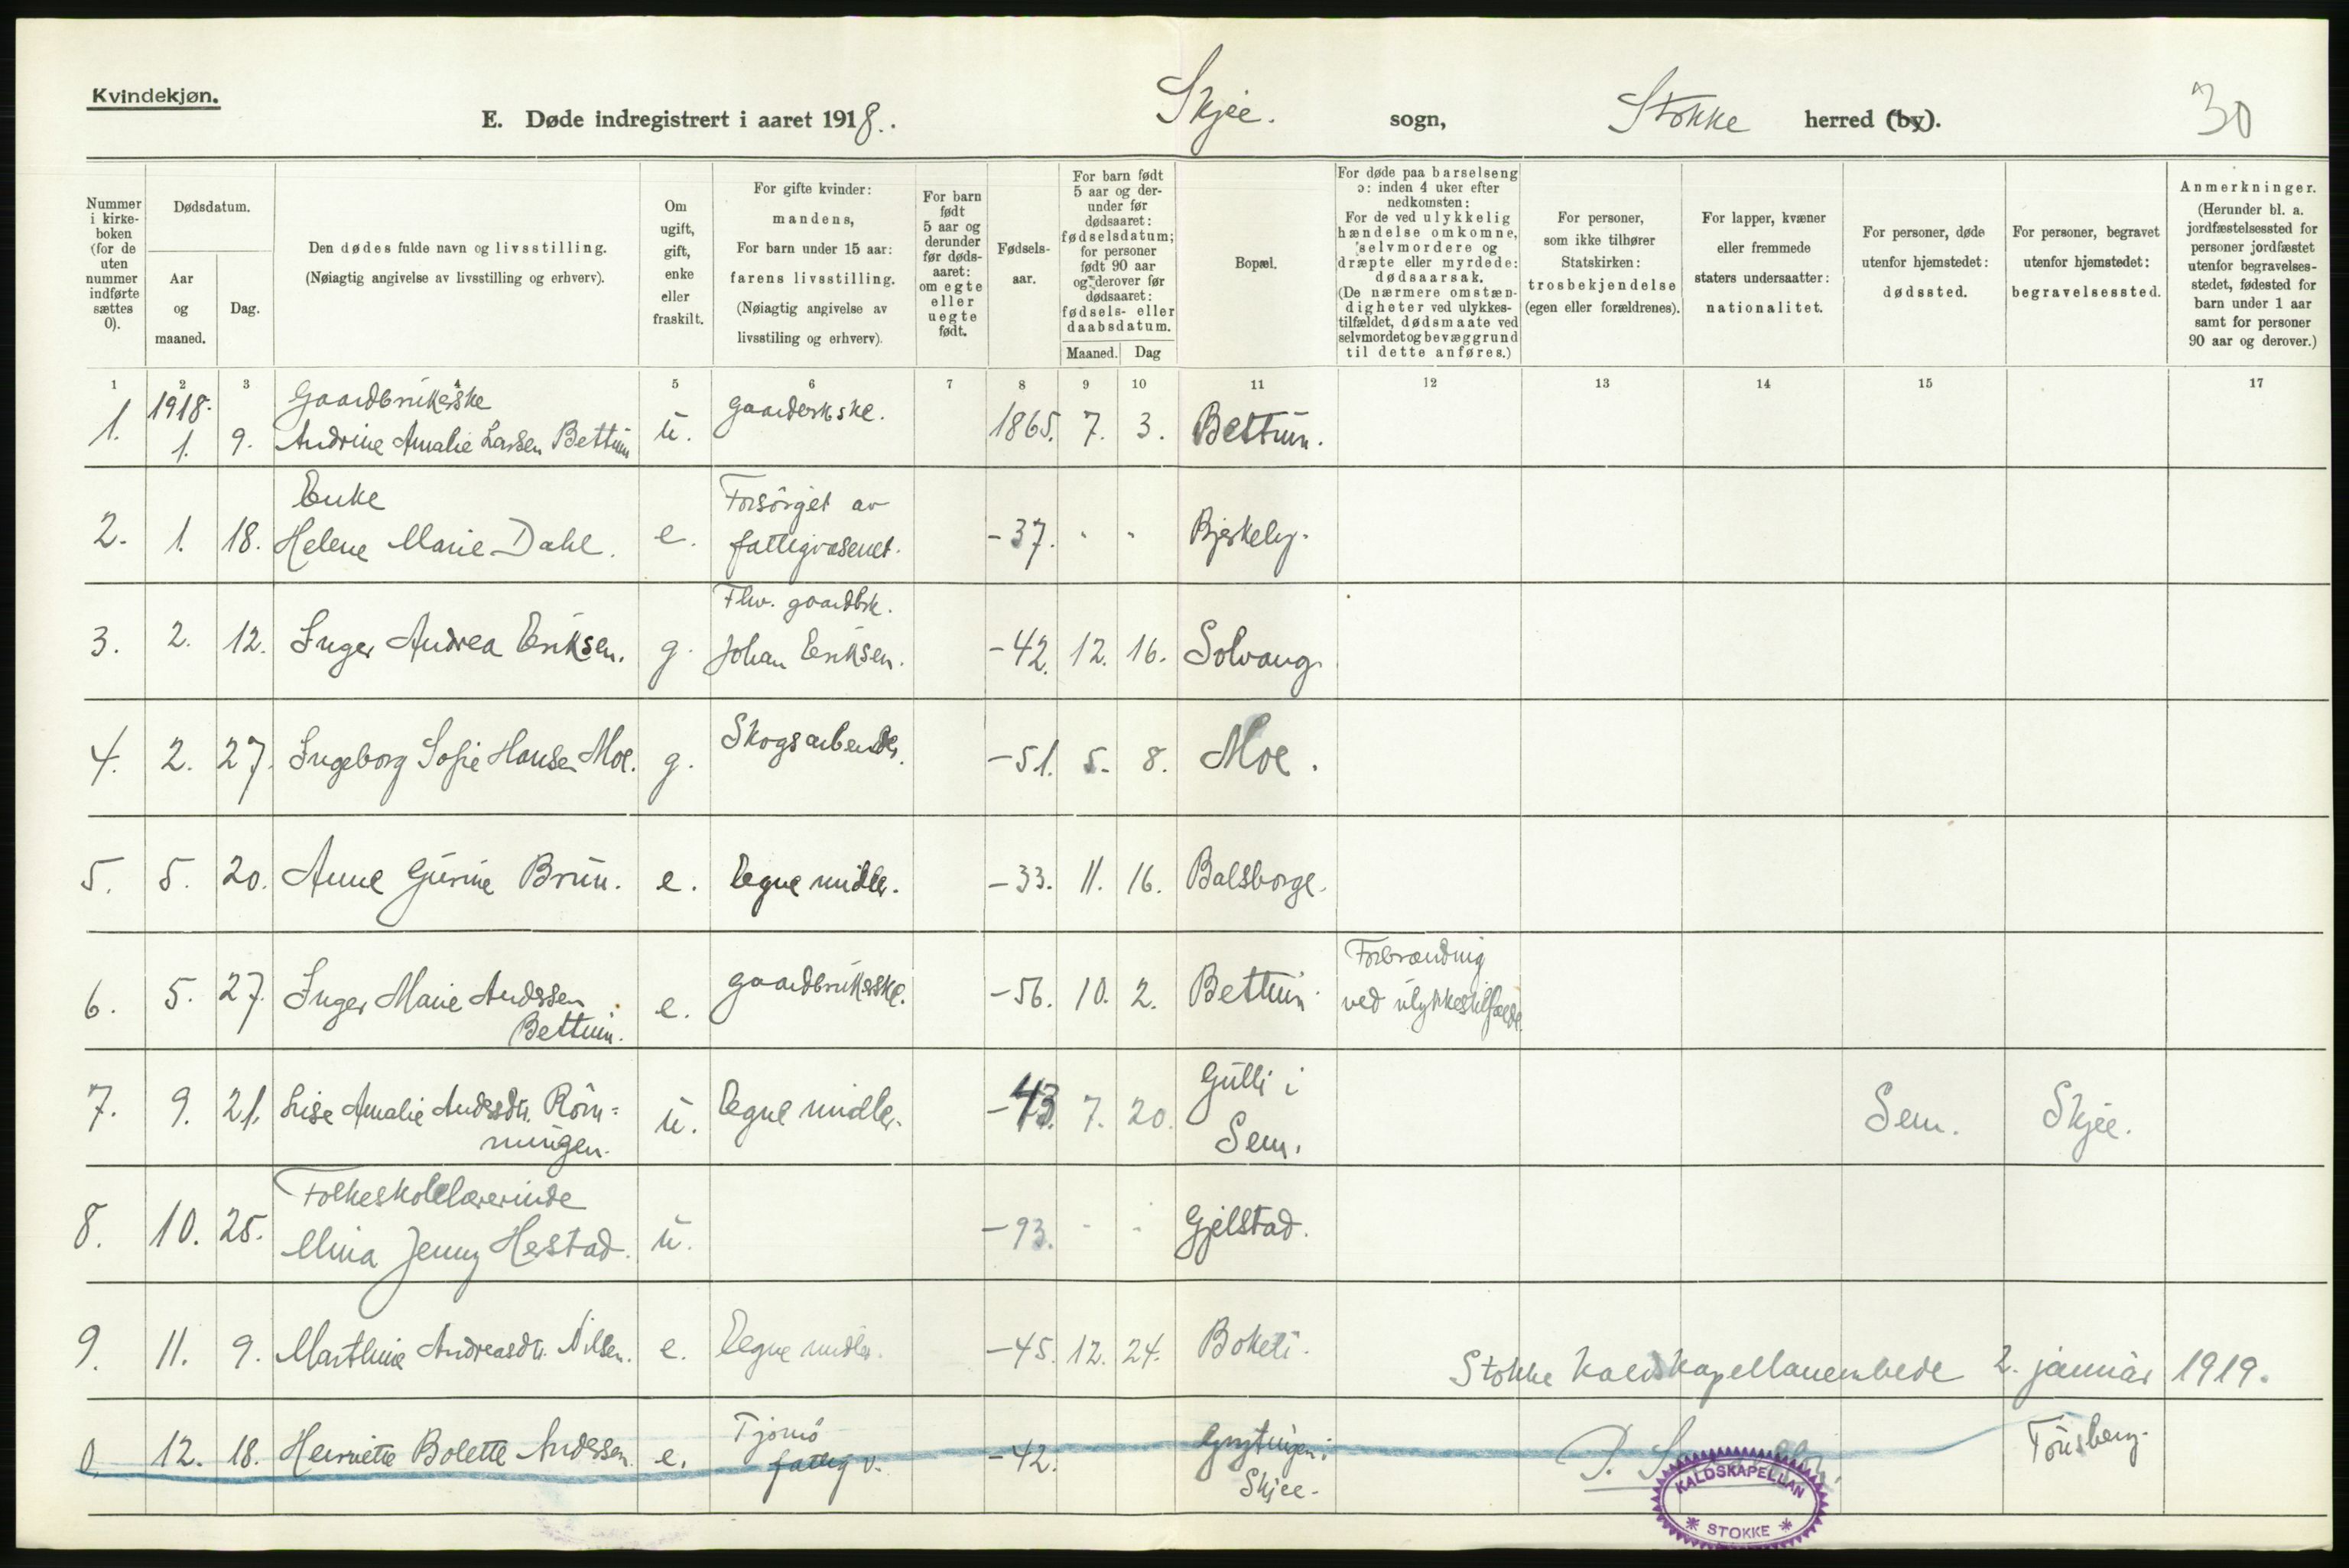 Kvindekjøn.
E. Døde indregistrert i aaret 1918.
Skjee. sogn,
Stokke herred (by).
30
Nummer i kirke-boken (for de uten nummer indførte sættes 0).
Dødsdatum.
Aar og maaned.
Dag.
Den dødes fulde navn og livsstilling.
(Nøiagtig angivelse av livsstilling og erhverv).
Om ugift, gift, enke eller fraskilt.
For gifte kvinder: mandens,
For barn under 15 aar: farens livsstilling.
(Nøiagtig angivelse av livsstiling og erhverv).
For barn født 5 aar og derunder før døds-aaret: om egte eller uegte født.
Fødsels-aar.
For barn født 5 aar og der-under før dødsaaret: fødselsdatum; for personer født 90 aar og derover før dødsaaret: fødsels- eller daabsdatum.
Maaned. Dag
Bopæl.
For døde paa barselseng ɔ: inden 4 uker efter nedkomsten:
For de ved ulykkelig hændelse omkomne, selvmordere og dræpte eller myrdede: dødsaarsak.
(De nærmere omstæn-digheter ved ulykkes-tilfældet, dødsmaate ved selvmordet og bevæggrund til dette anføres.)
For personer, som ikke tilhører Statskirken: trosbekjendelse (egen eller forældrenes).
For lapper, kvæner eller fremmede staters undersaatter: nationalitet.
For personer, døde utenfor hjemstedet: dødssted.
For personer, begravet utenfor hjemstedet: begravelsessted.
Anmerkninger.
(Herunder bl. a. jordfæstelsessted for personer jordfæstet utenfor begravelses-stedet, fødested for barn under 1 aar samt for personer 90 aar og derover.)
1 2 3 4 5 6 7 8 9 10 11 12 13 14 15 17
1918. Gaardbrukerske
1. 1. 9. Andrine Amalie Larsen Bettum u. gaarderkske. 1865. 7. 3. Bettum.
Enke Forsørget av
2. 1. 18. Helene Marie Dahl. e. fattigvæsenet. -37. - - Bjerkely.
Fhv. gaardbrk.
3. 2. 12. Inger Andrea Eriksen. g. Johan Eriksen. -42. 12. 16. Solvang.
4. 2. 27. Ingeborg Sofie Hansen Moe. g. Skogsarbeider. -51. 5. 8. Moe.
5. 5. 20. Anne Gurine Brun. e. Egne midler. -33. 11. 16. Balsborge.
6. 5. 27. Inger Marie Andersen e. gaardbrukerske. -56. 10. 2. Bettum. Forbrænding
Bettum. ved ulykkestilfælde.
7. 9. 21. Lise Amalie Andersdtr. Røn= u. Egne midler. -43. 7. 20. Gulli i Sem. Skjee.
ningen. Sem.
Folkeskolelærerinde
8. 10. 25. Mina Jenny Herstad. u. -93. - - Gjelstad.
9. 11. 9. Marthine Andreasdtr. Nilsen. e. Egne midler. -45. 12. 24. Bokeli.
Stokke kaldskapellanembede 2. januar 1919.
0. 12. 18. Henriette Bolette Andersen. e. Tjømø -42. Tønsberg.
fattigv. Skjee.
KALDSKAPELLAN
* STOKKE *